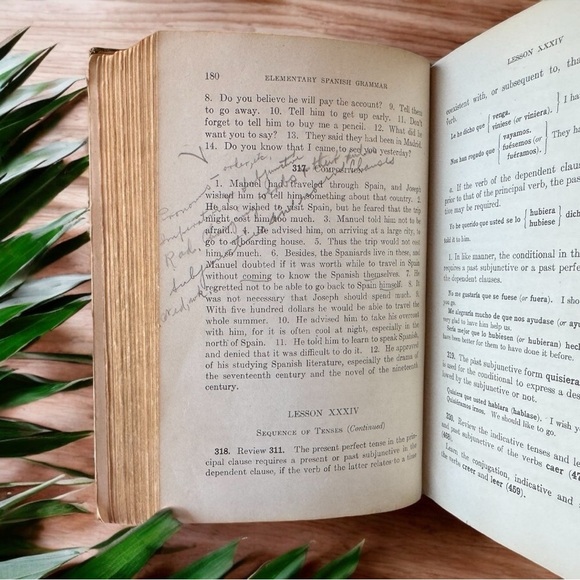 180 ELEMENTARY SPANISH GRAMMAR
8. Do you believe he will pay the account? 9. Tell them
to go away. 10. Tell him to get up early. 11. Don't
forget to tell him to buy me a pencil. 12. What did he
want you to say? 13. They said they had been in Madrid.
14. Do you know that I came to see you yesterday?
317. Composition
1. Manuel had traveled through Spain, and Joseph
wished him to tell him something about that country. 2.
He also wished to visit Spain, but he feared that the trip
might cost him too much. 3. Manuel told him not to be
afraid. 4. He advised him, on arriving at a large city, to
go to a boarding house. 5. Thus the trip would not cost
him so much. 6. Besides, the Spaniards live in these, and
Manuel doubted if it was worth while to travel in Spain
without coming to know the Spanish themselves. 7. He
regretted not to be able to go back to Spain himself. 8. It
was not necessary that Joseph should spend much. 9.
With five hundred dollars he would be able to travel the
whole summer. 10. He advised him to take his overcoat
with him, for it is often cool at night, especially in the
north of Spain. 11. He told him to learn to speak Spanish,
and denied that it was difficult to do it. 12. He approved
of his studying Spanish literature, especially the drama of
the seventeenth century and the novel of the nineteenth
century.
LESSON XXXIV
Sequence of Tenses (Continued)
318. Review 311. The present perfect tense in the prin-
cipal clause requires a present or past subjunctive in the
dependent clause, if the verb of the latter relates to a time
LESSON XXXIV
consistent with, or subsequent to, tha
verb.
Le he dicho que { venga.
viniese (or viniera). } I ha
Nos han rogado que { vayamos.
fuésemos (or
fuéramos). } They ha
a. If the verb of the dependent clause
prior to that of the principal verb, the past
tive may be required.
Te he querido que usted se lo { hubiera
hubiese } dich
told it to him.
b. In like manner, the conditional in the
requires a past subjunctive or a past perfe
the dependent clauses.
Me gustaría que se fuese (or fuera). I sho
go.
Me alegraría mucho de que nos ayudase (or ay
very glad to have him help us.
Sería mejor que lo hubiesen (or hubieran) hecho
have been better for them to have done it before.
319. The past subjunctive form quisiera
is used for the conditional to express a des
lowed by the subjunctive or not.
Quisiera que usted hablara (hablase). I wish y
Quisiéramos irnos. We should like to go.
320. Review the indicative tenses and le
and past subjunctive of the verbs caer (47
(468).
Learn the conjugation, indicative and s
the verbs creer and leer (459).